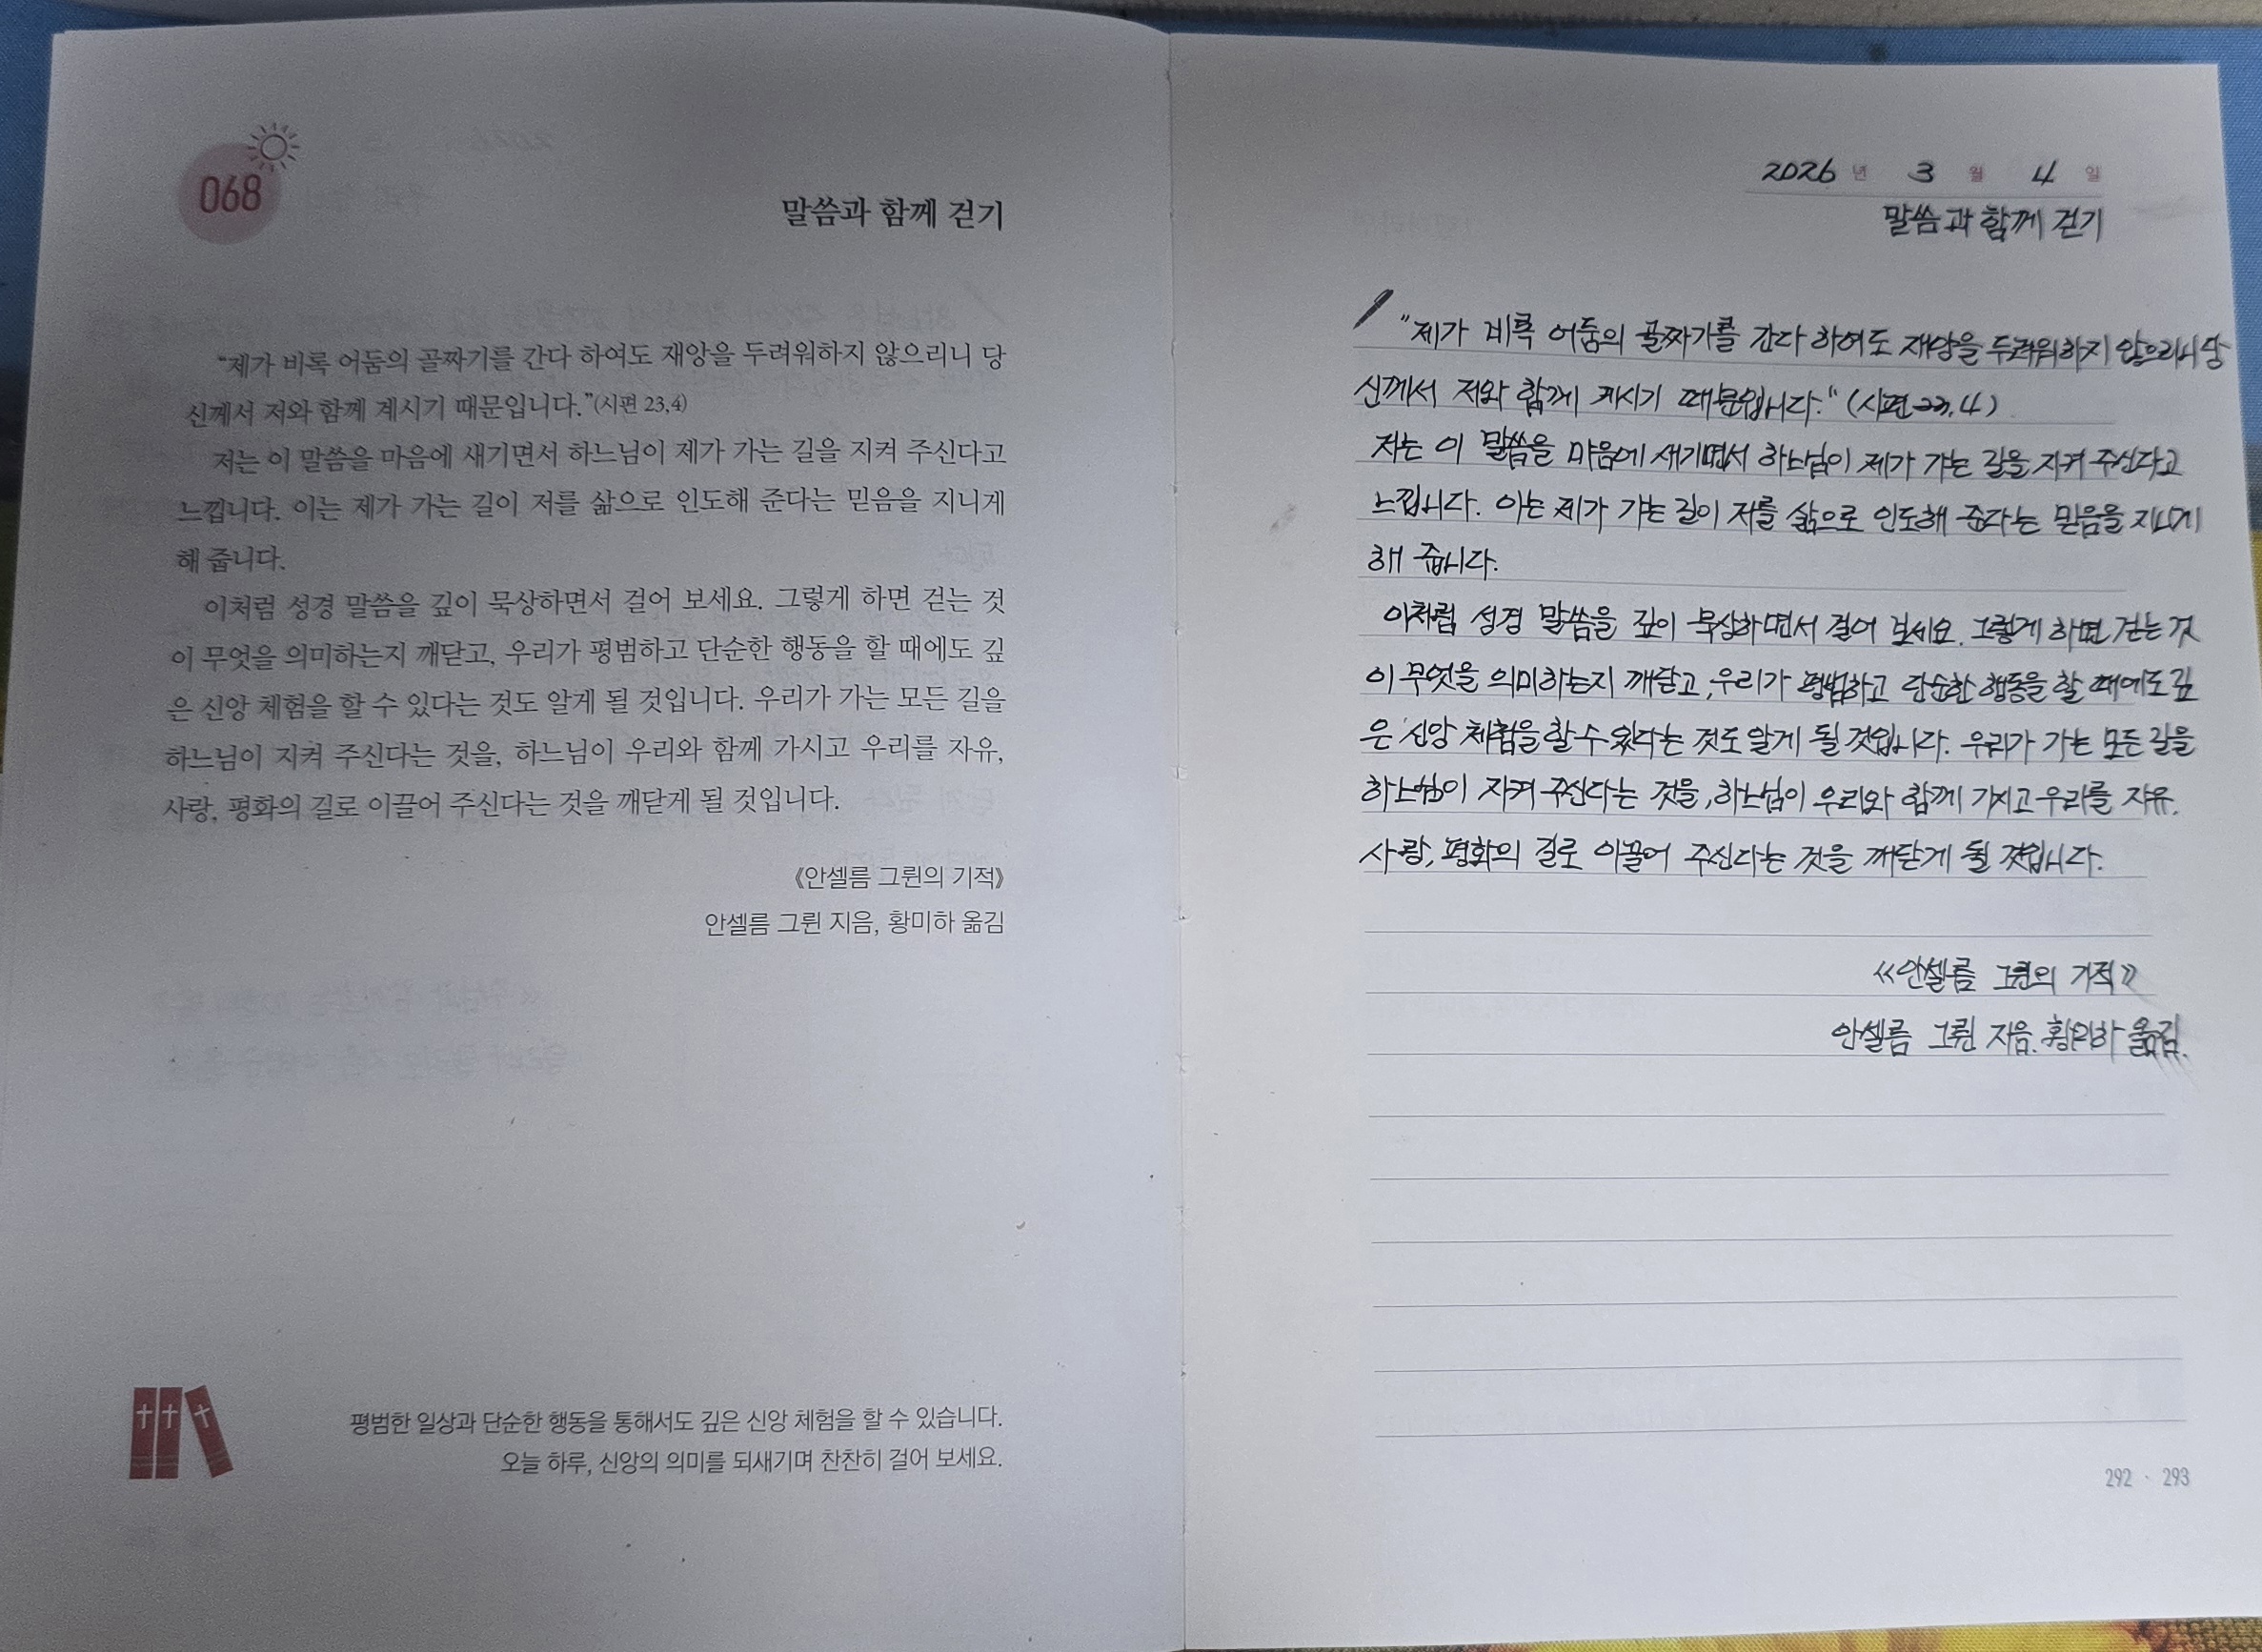 068
말씀과 함께 걷기
“제가 비록 어둠의 골짜기를 간다 하여도 재앙을 두려워하지 않으리니 당
신께서 저와 함께 계시기 때문입니다.”(시편 23,4)
저는 이 말씀을 마음에 새기면서 하느님이 제가 가는 길을 지켜 주신다고
느낍니다. 이는 제가 가는 길이 저를 삶으로 인도해 준다는 믿음을 지니게
해 줍니다.
이처럼 성경 말씀을 깊이 묵상하면서 걸어 보세요. 그렇게 하면 걷는 것
이 무엇을 의미하는지 깨닫고, 우리가 평범하고 단순한 행동을 할 때에도 깊
은 신앙 체험을 할 수 있다는 것도 알게 될 것입니다. 우리가 가는 모든 길을
하느님이 지켜 주신다는 것을, 하느님이 우리와 함께 가시고 우리를 자유,
사랑, 평화의 길로 이끌어 주신다는 것을 깨닫게 될 것입니다.
《안셀름 그륀의 기적》
안셀름 그륀 지음, 황미하 옮김
평범한 일상과 단순한 행동을 통해서도 깊은 신앙 체험을 할 수 있습니다.
오늘 하루, 신앙의 의미를 되새기며 찬찬히 걸어 보세요.
2026 년 3 월 4 일
말씀과 함께 걷기
"제가 비록 어둠의 골짜기를 간다 하여도 재앙을 두려워하지 않으리니 당
신께서 저와 함께 계시기 때문입니다." (시편 23,4)
저는 이 말씀을 마음에 새기면서 하느님이 제가 가는 길을 지켜 주신다고
느낍니다. 이는 제가 가는 길이 저를 삶으로 인도해 준다는 믿음을 지니게
해 줍니다.
이처럼 성경 말씀을 깊이 묵상하면서 걸어 보세요. 그렇게 하면 걷는 것
이 무엇을 의미하는지 깨닫고, 우리가 평범하고 단순한 행동을 할 때에도 깊
은 신앙 체험을 할 수 있다는 것도 알게 될 것입니다. 우리가 가는 모든 길을
하느님이 지켜 주신다는 것을, 하느님이 우리와 함께 가시고 우리를 자유.
사랑, 평화의 길로 이끌어 주신다는 것을 깨닫게 될 것입니다.
《안셀름 그륀의 기적》
안셀름 그륀 지음. 황미하 옮김.
292 · 293